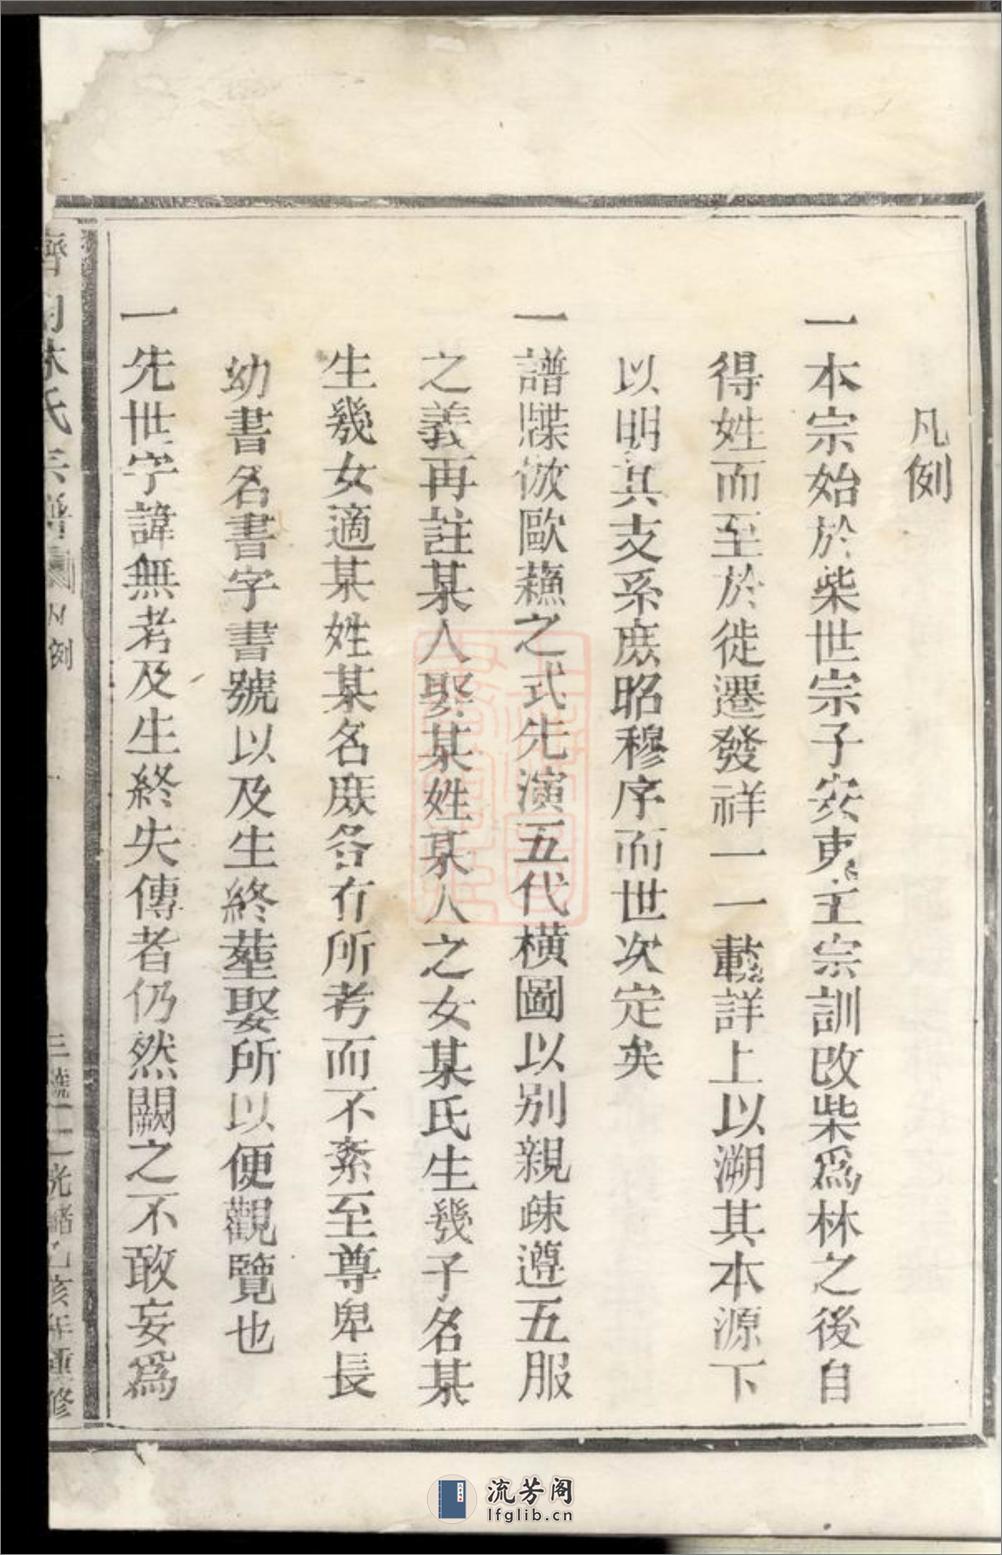 凡例
一本宗始於柴世宗子安東王宗訓改柴為林之後自
得姓而至於徙遷發祥一一載詳上以溯其本源下
以明其支系庶昭穆序而世次定矣
一譜牒倣歐蘓之式先演五代橫圖以別親疎遵五服
之義再註某人娶某姓某人之女某氏生幾子名某
生幾女適某姓某名庶各有所考而不紊至尊卑長
幼書名書字書號以及生終塟娶所以便觀覽也
一先世字諱無考及生終失傳者仍然闕之不敢妄為
林氏宗譜 凡例
光緒乙亥年重修
流芳阁
lfglib.cn